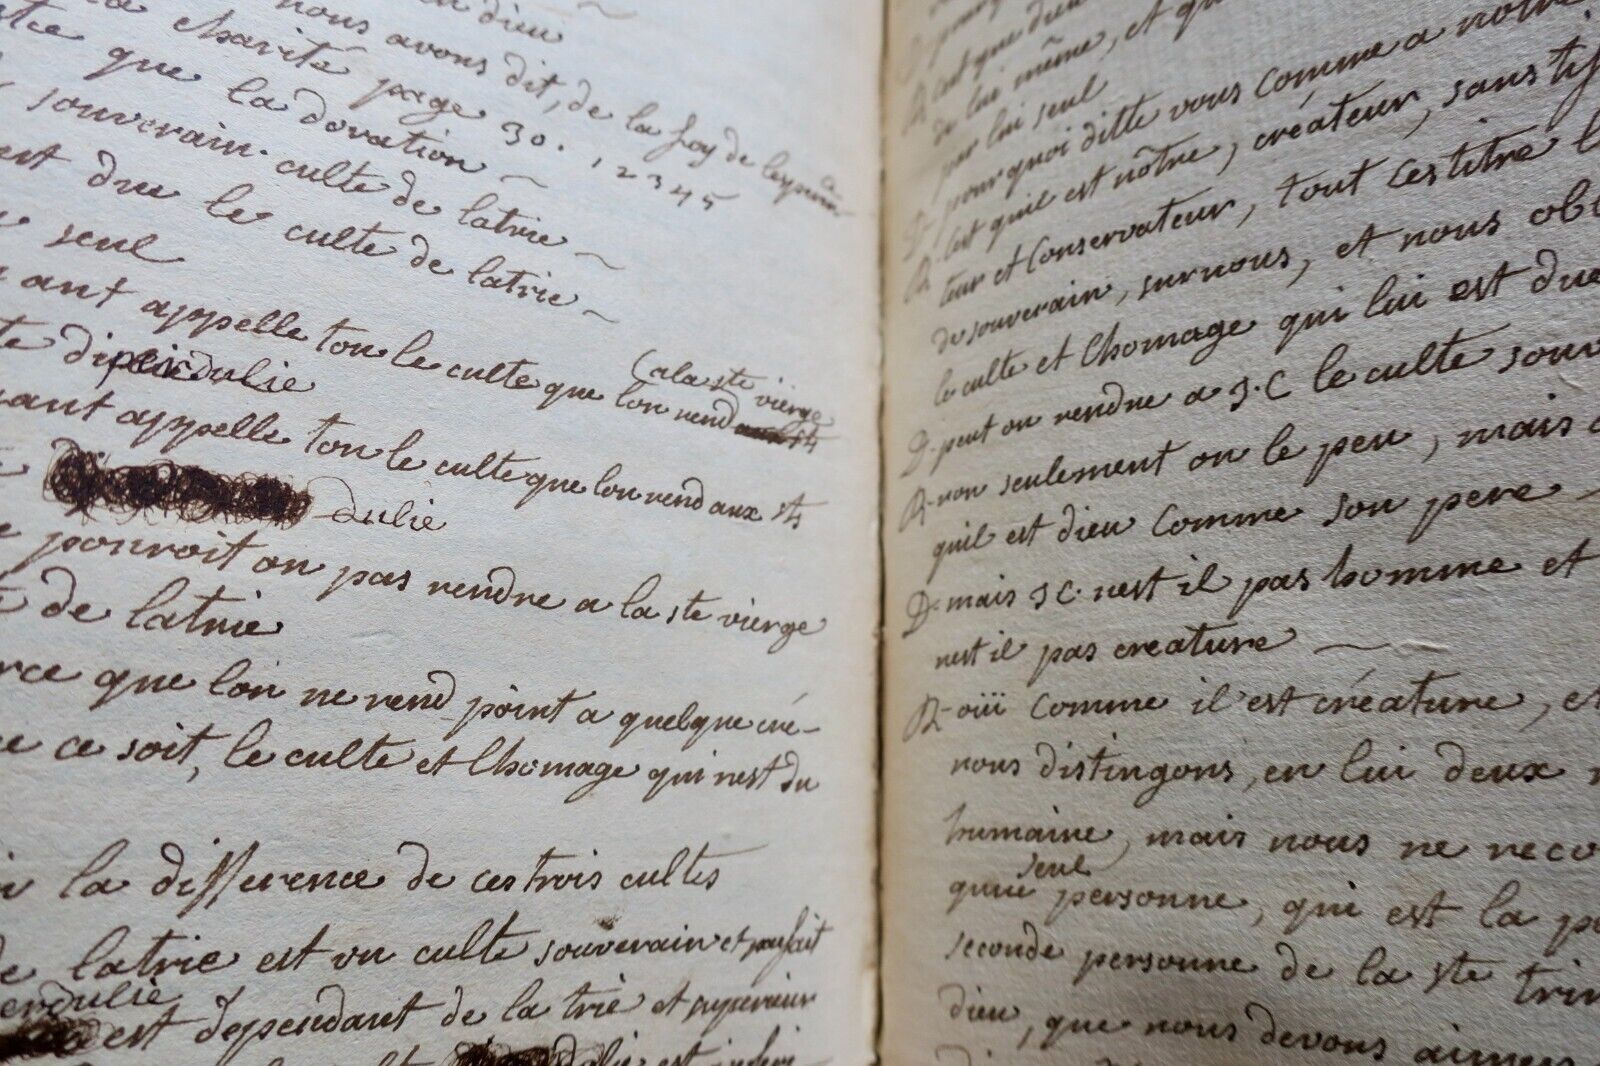 en dieu
nous avons dit, de la foy de lesperan
charité page 30. 12345
que la doration
souverain culte de latrie
est due le culte de latrie
seul
ant appelle ton le culte que lon rend
a la ste vierge
dulie
ant appelle ton le culte que lon rend aux sts
dulie
pouroit on pas rendre a la ste vierge
de latrie
rce que lon ne rend point a quelque cré-
ce soit, le culte et lhomage qui nest du
la difference de ces trois cultes
de latrie est un culte souverain et parfait
erdulie
est dependant de la trie et superieur
dulie est
cest que dieu
de lui même, et qu
par lui seul
D. pourquoi ditte vous comme a notre
R. cest quil est nôtre, créateur, sans
teur et Conservateur, tout ces titre l
de souverain, sur nous, et nous obl
le culte et lhomage qui lui est due
D. peut on rendre a J.C le culte souv
R. non seulement on le peu, mais
quil est dieu comme son pere
D. mais J.C. nest il pas homme et
nest il pas creature
R. oüi comme il est créature, et
nous distingons, en lui deux n
humaine, mais nous ne reco
seul
qune personne, qui est la p
seconde personne de la ste trin
dieu, que nous devons aimer